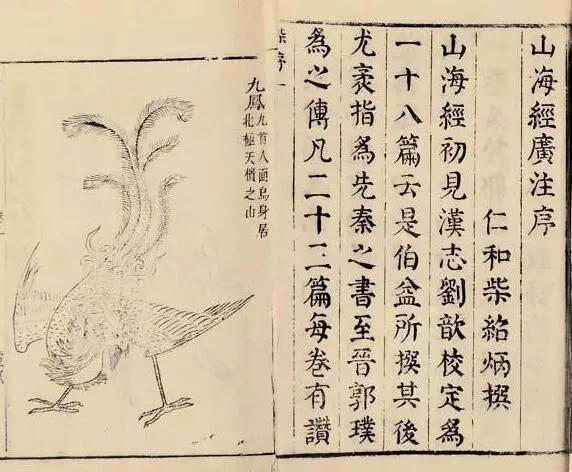 山海經廣注序
仁和柴紹炳撰
山海經初見漢志劉歆校定為
一十八篇云是伯益所撰其後
尤袤指為先秦之書至晉郭璞
為之傳凡二十三篇每卷有讚
柴序一
九鳳九首人面鳥身居
北極天櫃之山